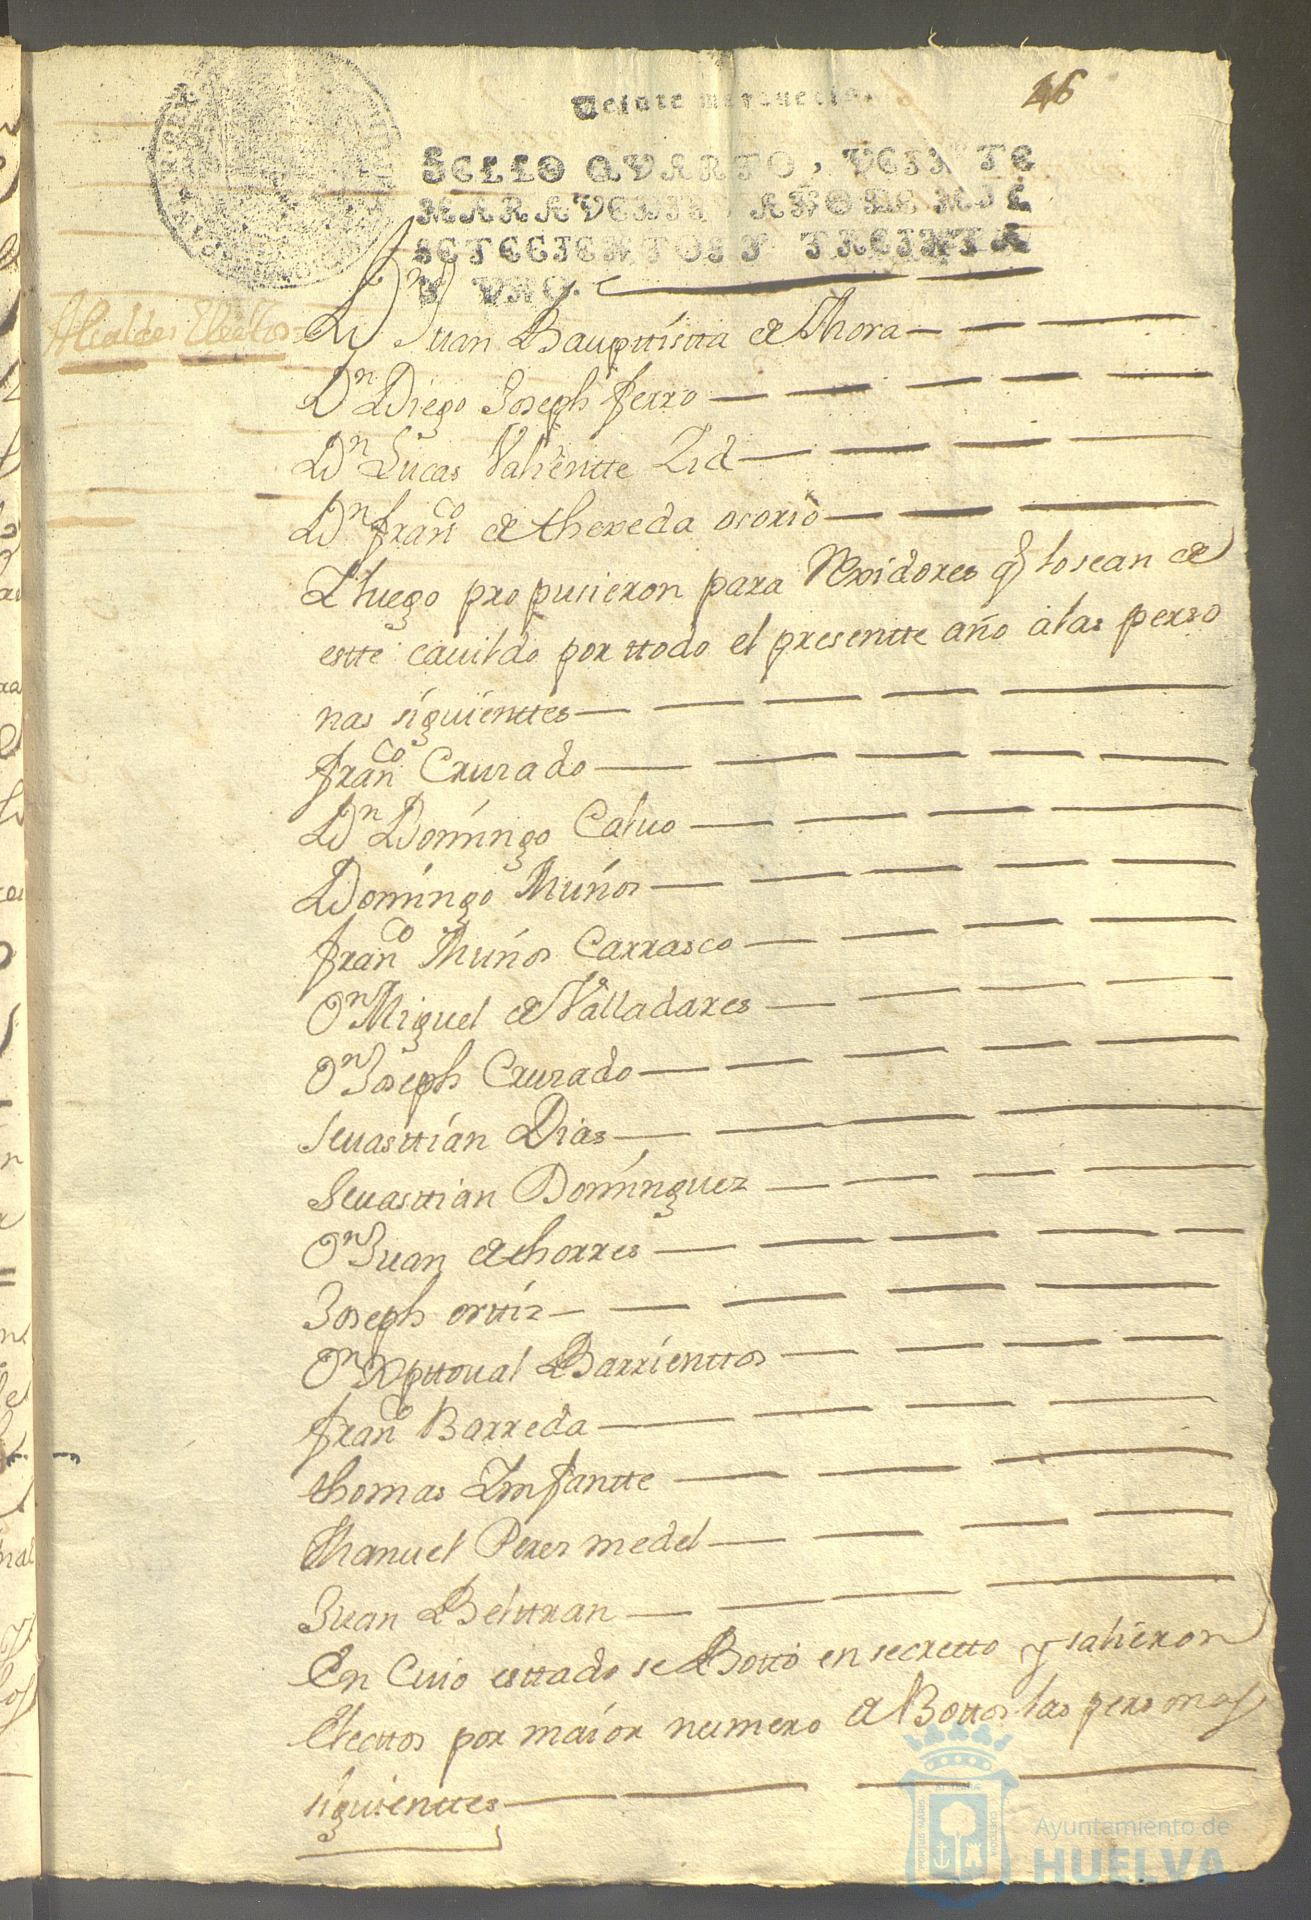 Veinte maravedis.
46
SELLO QVARTO, VEINTE
MARAVEDIS, AÑO DE MIL
SETECIENTOS Y TREINTA
Y VNO.
Alcaldes Electos
Dn Juan Bauptistta de Mora
Dn Diego Joseph ferro
Dn Lucas Valientte Zid
Dn franco de thexeda osorio
Y luego propusieron para Rexidores q lo sean de
estte cavildo por ttodo el presentte año a las perso
nas siguienttes
franco Cruzado
Dn Domingo Calvo
Domingo Muños
franco Muños Carrasco
Dn Miguel de Valladares
Dn Joseph Cruzado
sevasttian Dias
Sevasttian Dominguez
Dn Juan de thorres
Joseph orttiz
Dn Xpttoval Barrienttos
franco Barreda
thomas Ynfantte
Manuel Perez medel
Juan Belttran
En Cuio esttado se Botto en secretto y salieron
Electtos por maior numero de Bottos las personas
siguienttes
Ayuntamiento de
HUELVA